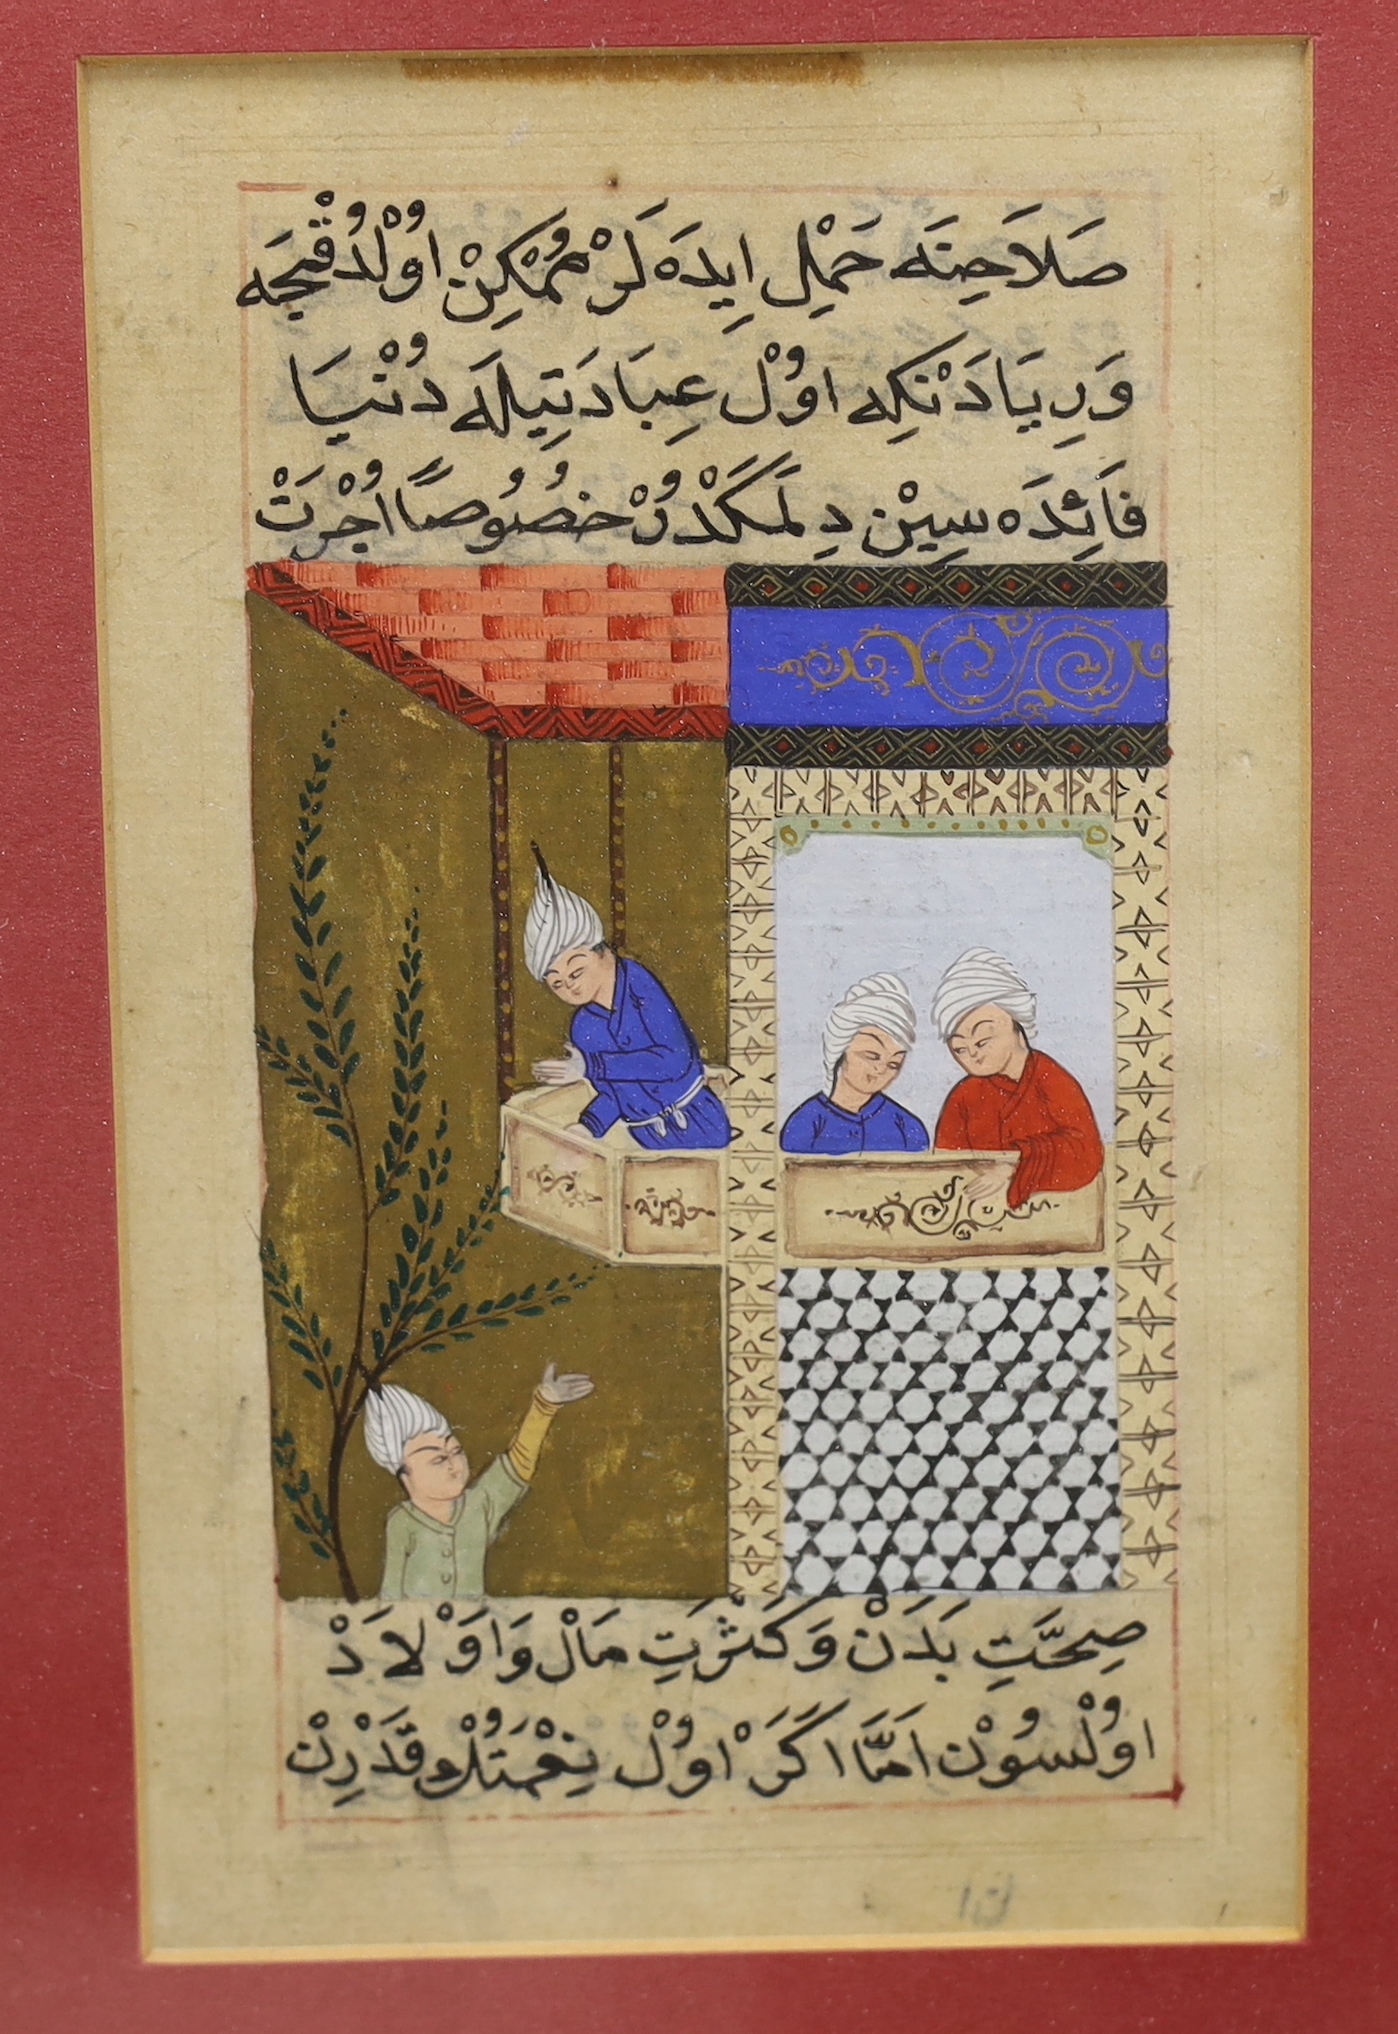 صَلَاحِنَه حَمْلِ اِيدَه لَرْ مُمْكِنْ اوُلْدُقْجَه
وَرِ يَا دَنْكِه اوُلْ عِبَادَتِيلَه دُنْيَا
فَائِدَه سِيْن دِلَمَكْدُرْ خُصُوصًا اُجْرَتْ
صِحَّتِ بَدَنْ وَكَثْرَتِ مَالْ وَاَوْلَادْ
اوُلْسُوْن اَمَّا اَكَرْ اوُلْ نِعْمَتُلَرْ قَدْرِنْ